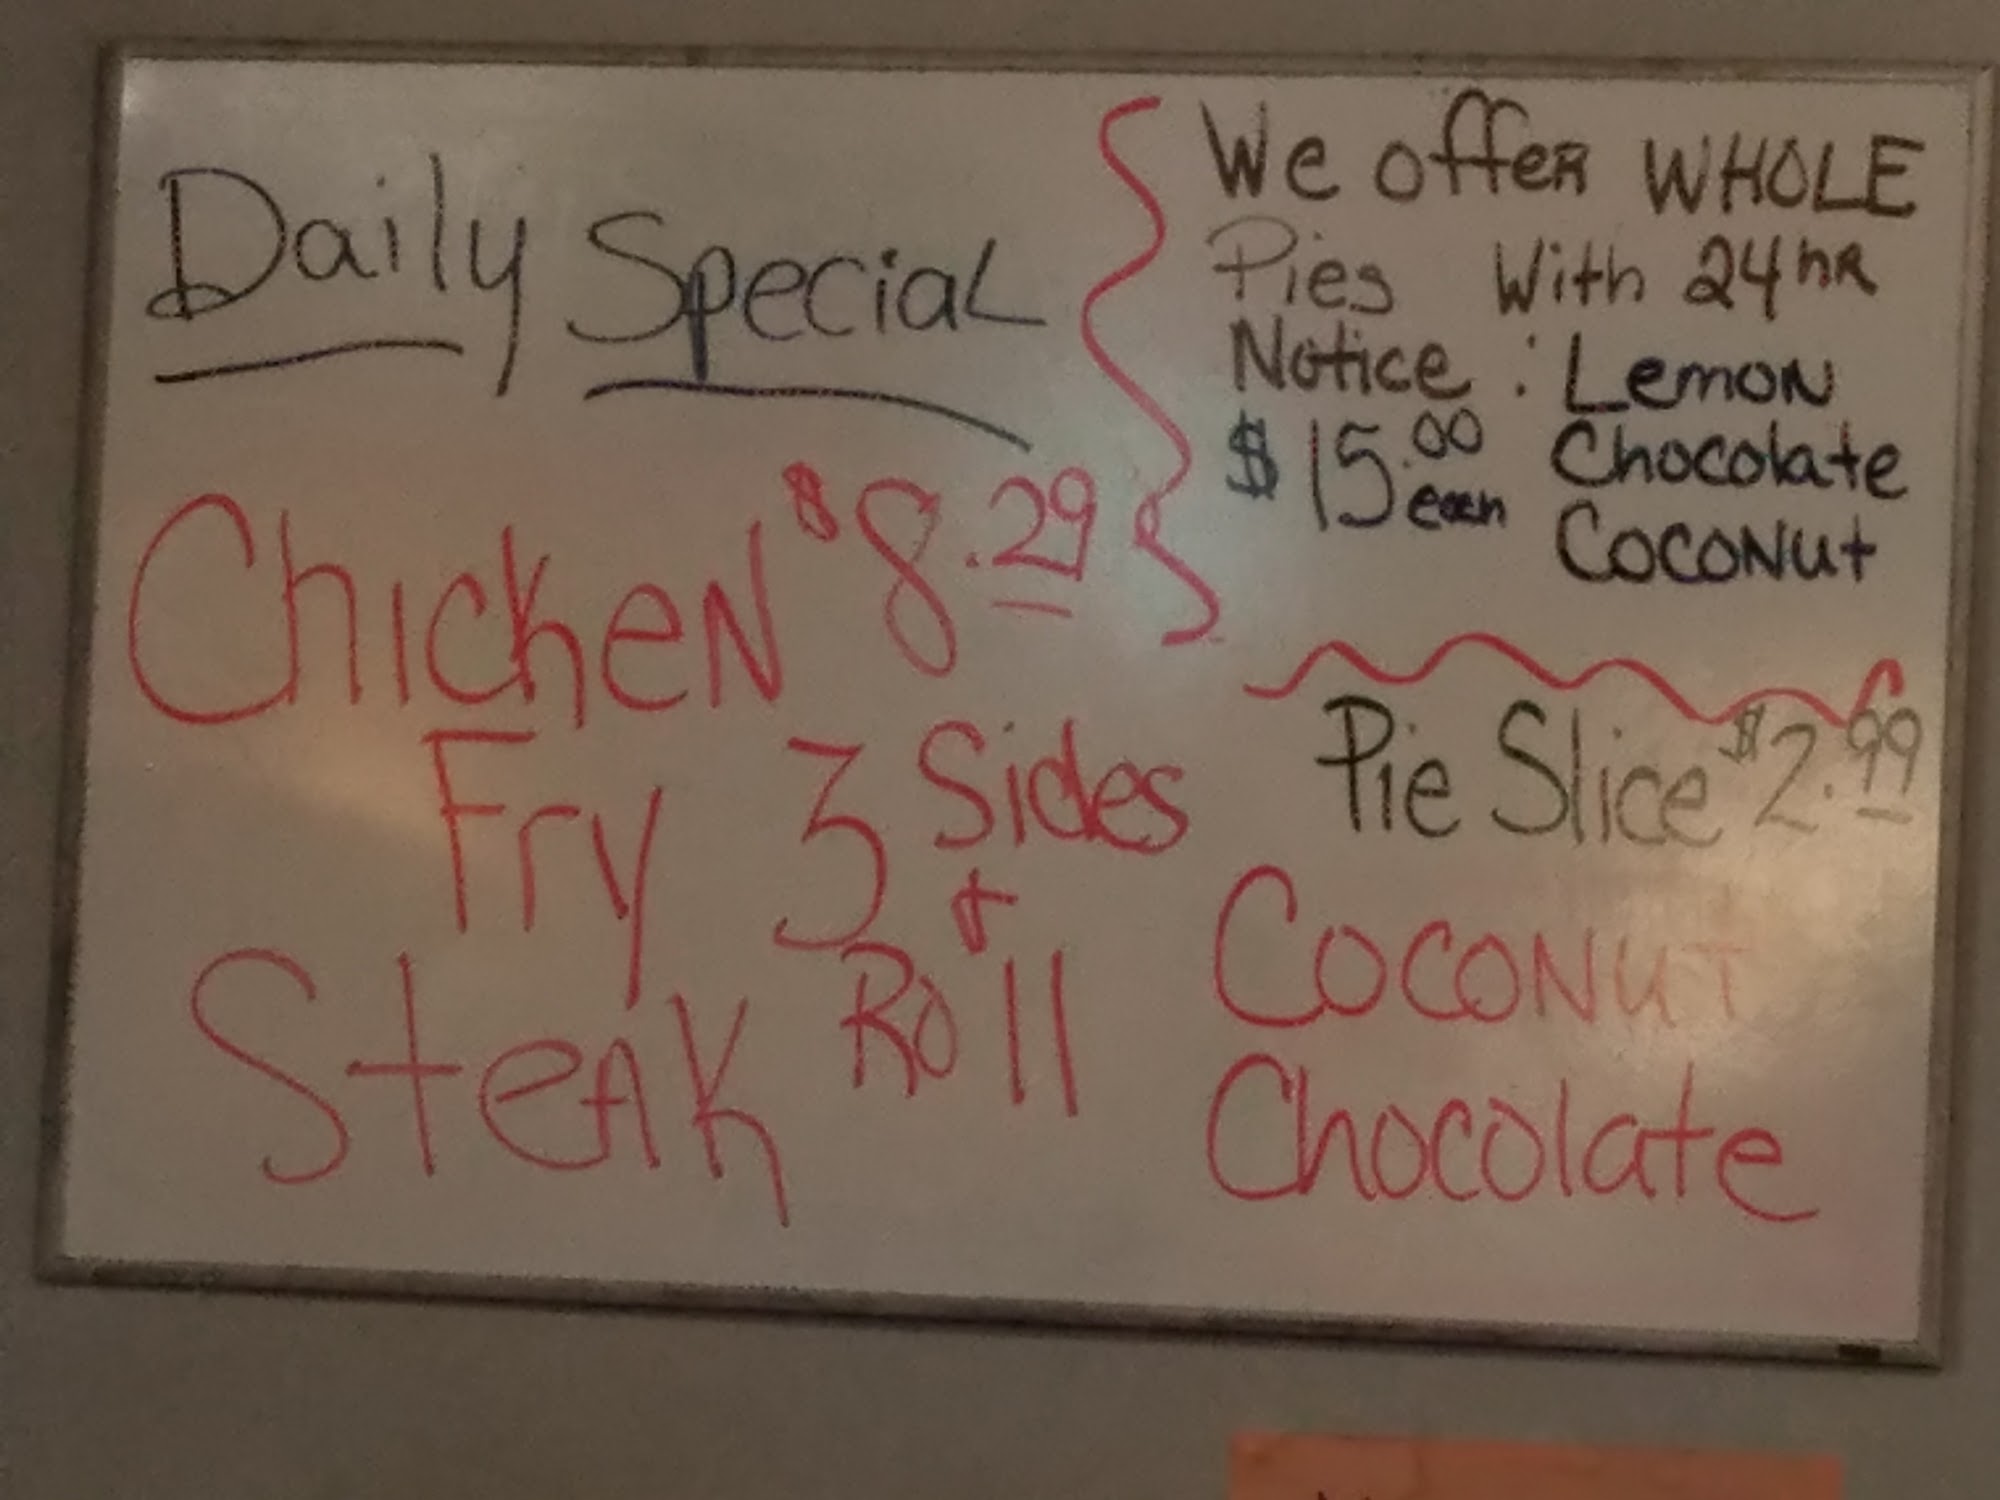 Daily Special
Chicken $8.29
Fry 3 Sides
+
Steak Roll
We offer WHOLE
Pies With 24 hr
Notice : Lemon
$15.00 each Chocolate
Coconut
Pie Slice $2.99
Coconut
Chocolate